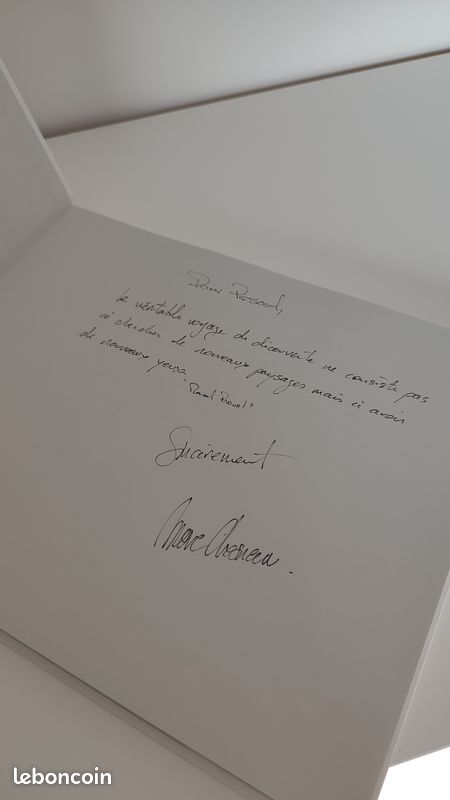 Pour Pascal,
Le véritable voyage de découverte ne consiste pas
à chercher de nouveaux paysages mais à avoir
de nouveaux yeux.
"Marcel Proust"
Sincèrement
leboncoin